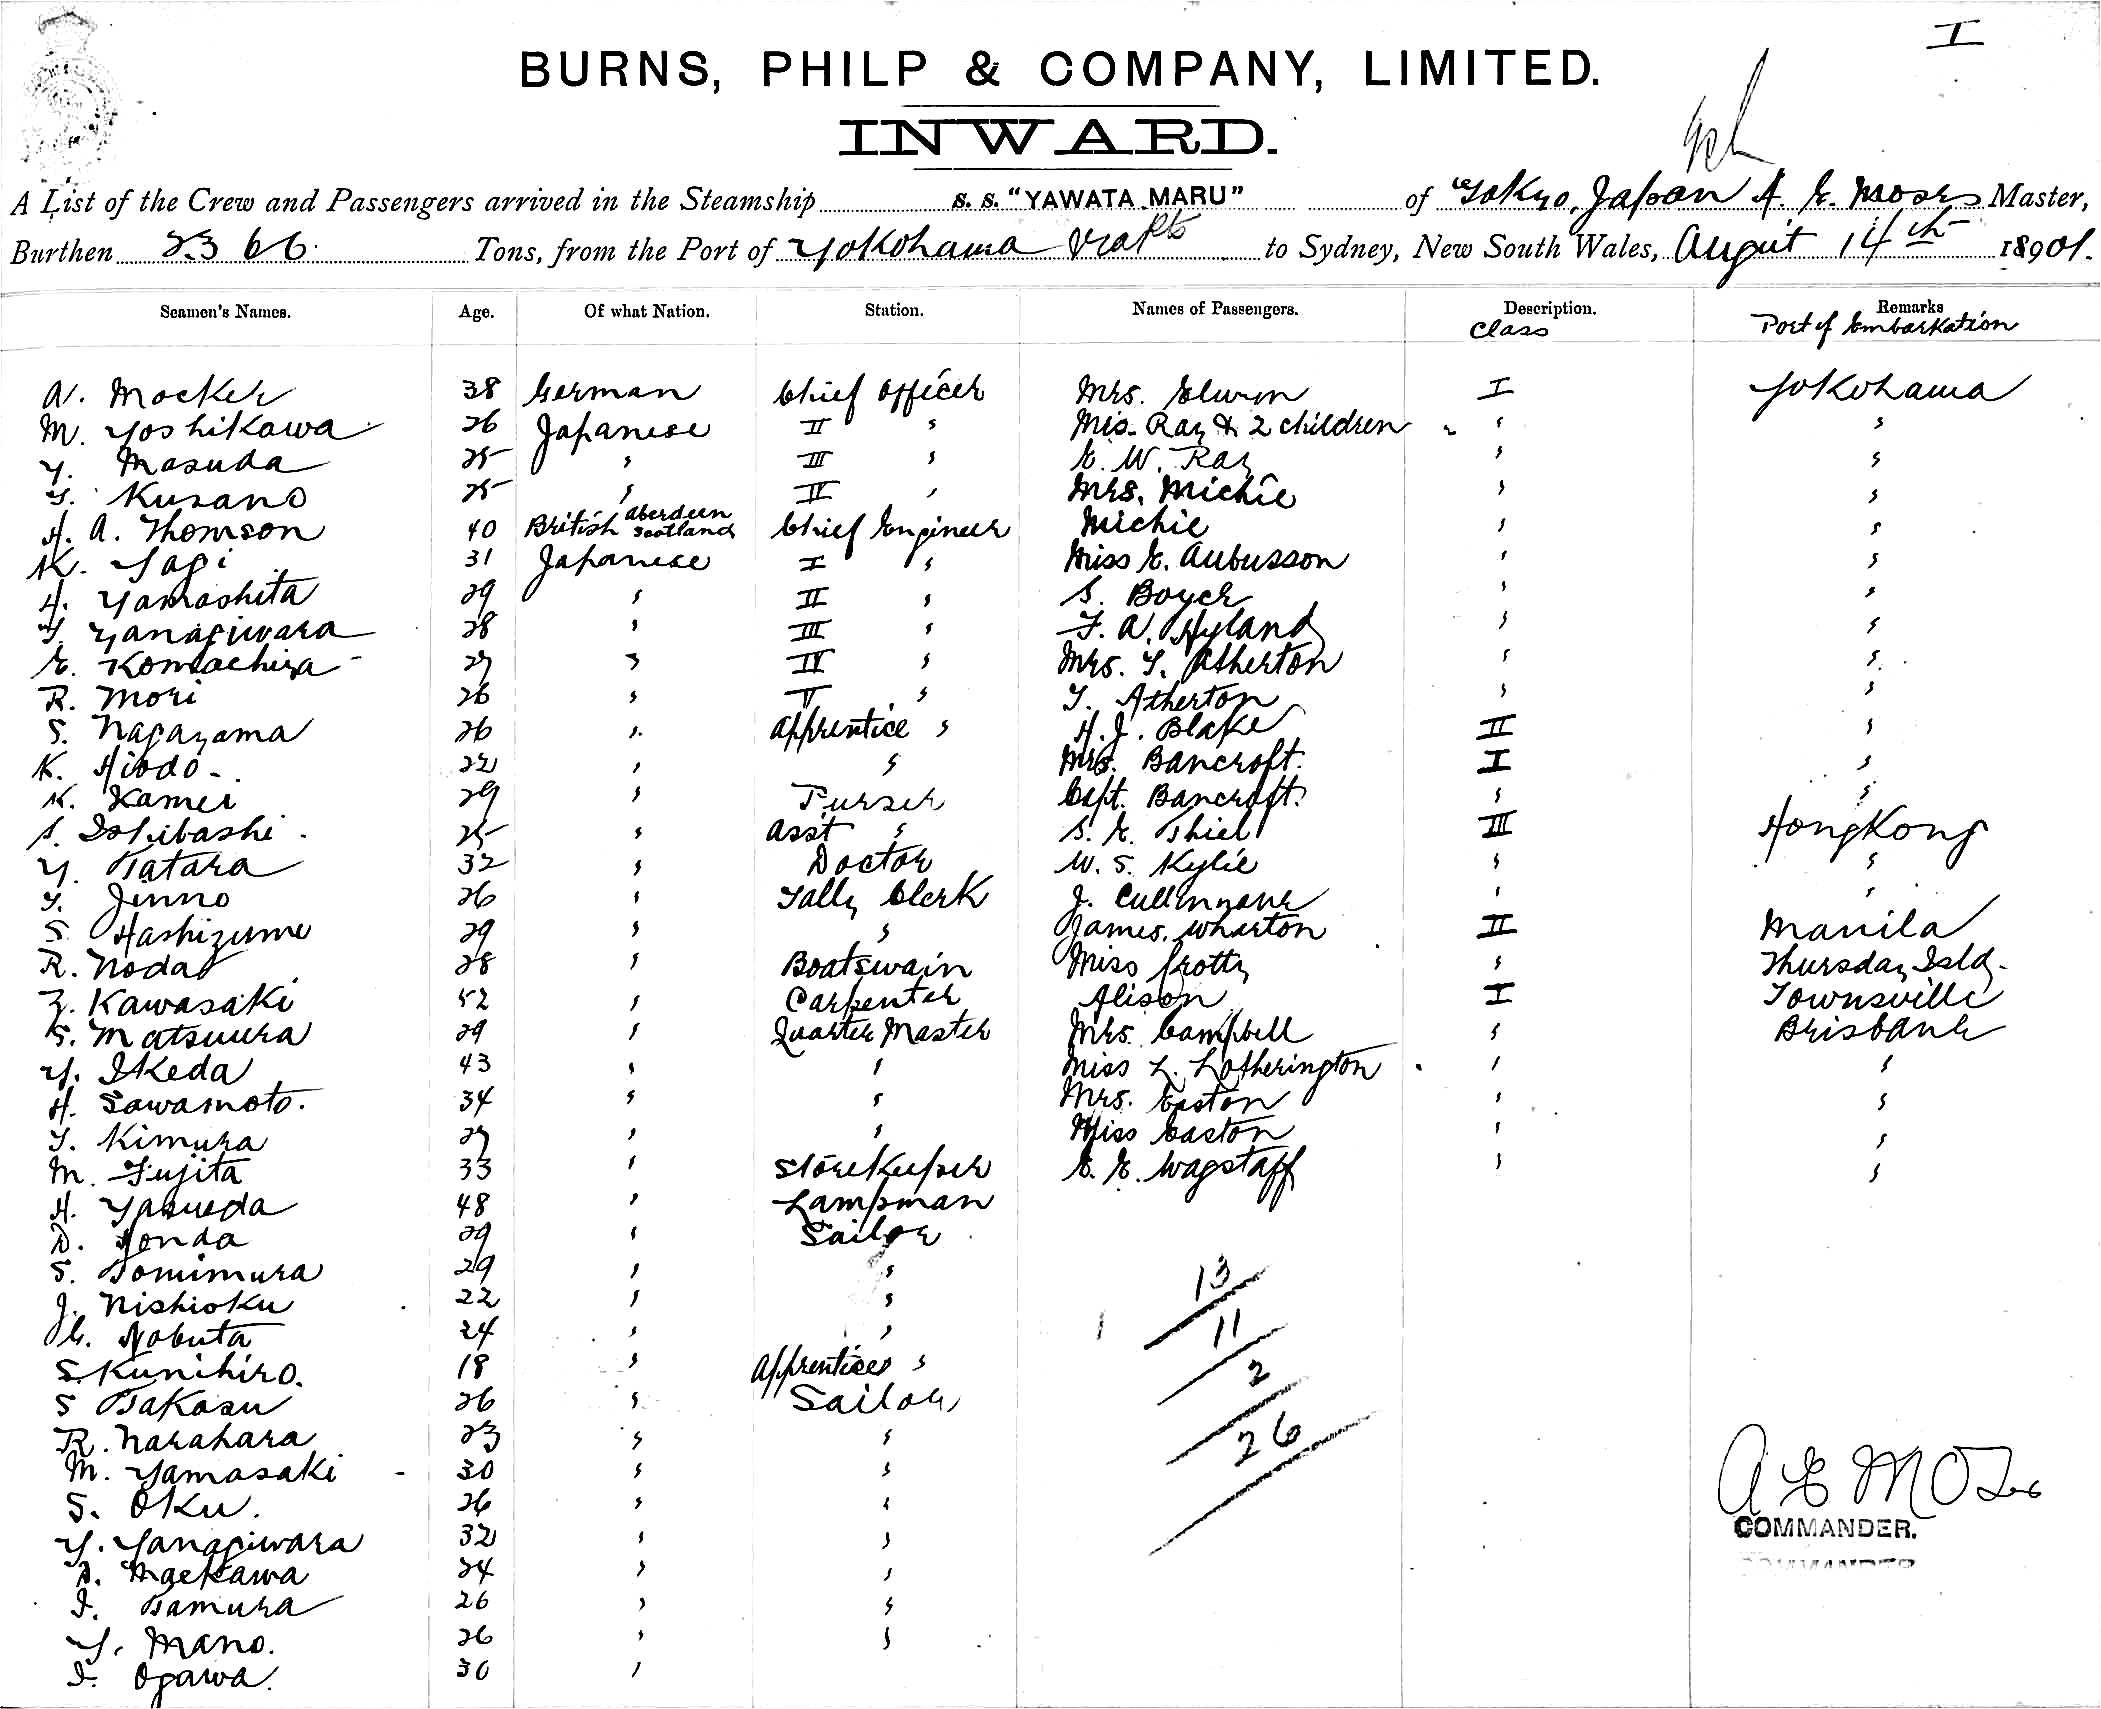 I
BURNS, PHILP & COMPANY, LIMITED.
INWARD.
A List of the Crew and Passengers arrived in the Steamship S. S. "YAWATA MARU" of Tokyo, Japan A. E. Moses Master,
Burthen 2366 Tons, from the Port of Yokohama via Pts to Sydney, New South Wales, August 14th 18901.
Seamen's Names. Age. Of what Nation. Station. Names of Passengers. Description. Remarks
Class Port of Embarkation
A. Mocker 38 German Chief Officer Mrs. Elwin I Yokohama
M. Yoshikawa 26 Japanese II " Mrs. Ray & 2 children " "
Y. Masuda 25 " III " E. W. Ray " "
T. Kusano 25 " IV " Mrs. Michie " "
H. A. Thomson 40 British Aberdeen Scotland Chief Engineer Michie " "
K. Yagi 31 Japanese I " Miss E. Aubusson " "
H. Yamashita 29 " II " S. Boyer " "
T. Yanagiwara 28 " III " F. A. Hyland " "
E. Komachiya 27 " IV " Mrs. T. Atherton " "
R. Mori 26 " V " T. Atherton " "
S. Nagayama 26 " Apprentice " H. J. Blake II "
K. Hiodo 22 " " Mrs. Bancroft. I "
K. Kamei 29 " Purser Capt. Bancroft. " "
S. Ishibashi 25 " Asst " S. E. Thiel III HongKong
Y. Tatara 32 " Doctor W. S. Kylie " "
T. Jinno 26 " Tally Clerk J. " "
S. Hashizume 29 " " James Wharton II Manila
R. Noda 28 " Boatswain Miss Crotty " Thursday Isld.
Z. Kawasaki 52 " Carpenter Alison I Townsville
S. Matsuura 29 " Quarter Master Mrs. Campbell " Brisbane
Y. Ikeda 43 " " Miss L. Lotherington " "
H. Sawamoto. 34 " " Mrs. Easton " "
T. Kimura 27 " " Miss Easton " "
M. Fujita 33 " Storekeeper E. E. Wagstaff " "
H. Yasueda 48 " Lampman
D. Honda 29 " Sailor
S. Tomimura 29 " "
J. Nishioku 22 " "
Nobuta 24 " "
S. Kunihiro. 18 " Apprentices "
S Takasu 26 " Sailor
R. Narahara 23 " "
M. Yamasaki 30 " "
S. Oku. 26 " "
Y. Yanagiwara 32 " "
Maekawa 24 " "
I. Tamura 26 " "
Y. Mano. 26 " "
I. Ogawa. 30 "
13
11
2
26
A E Moses
COMMANDER.